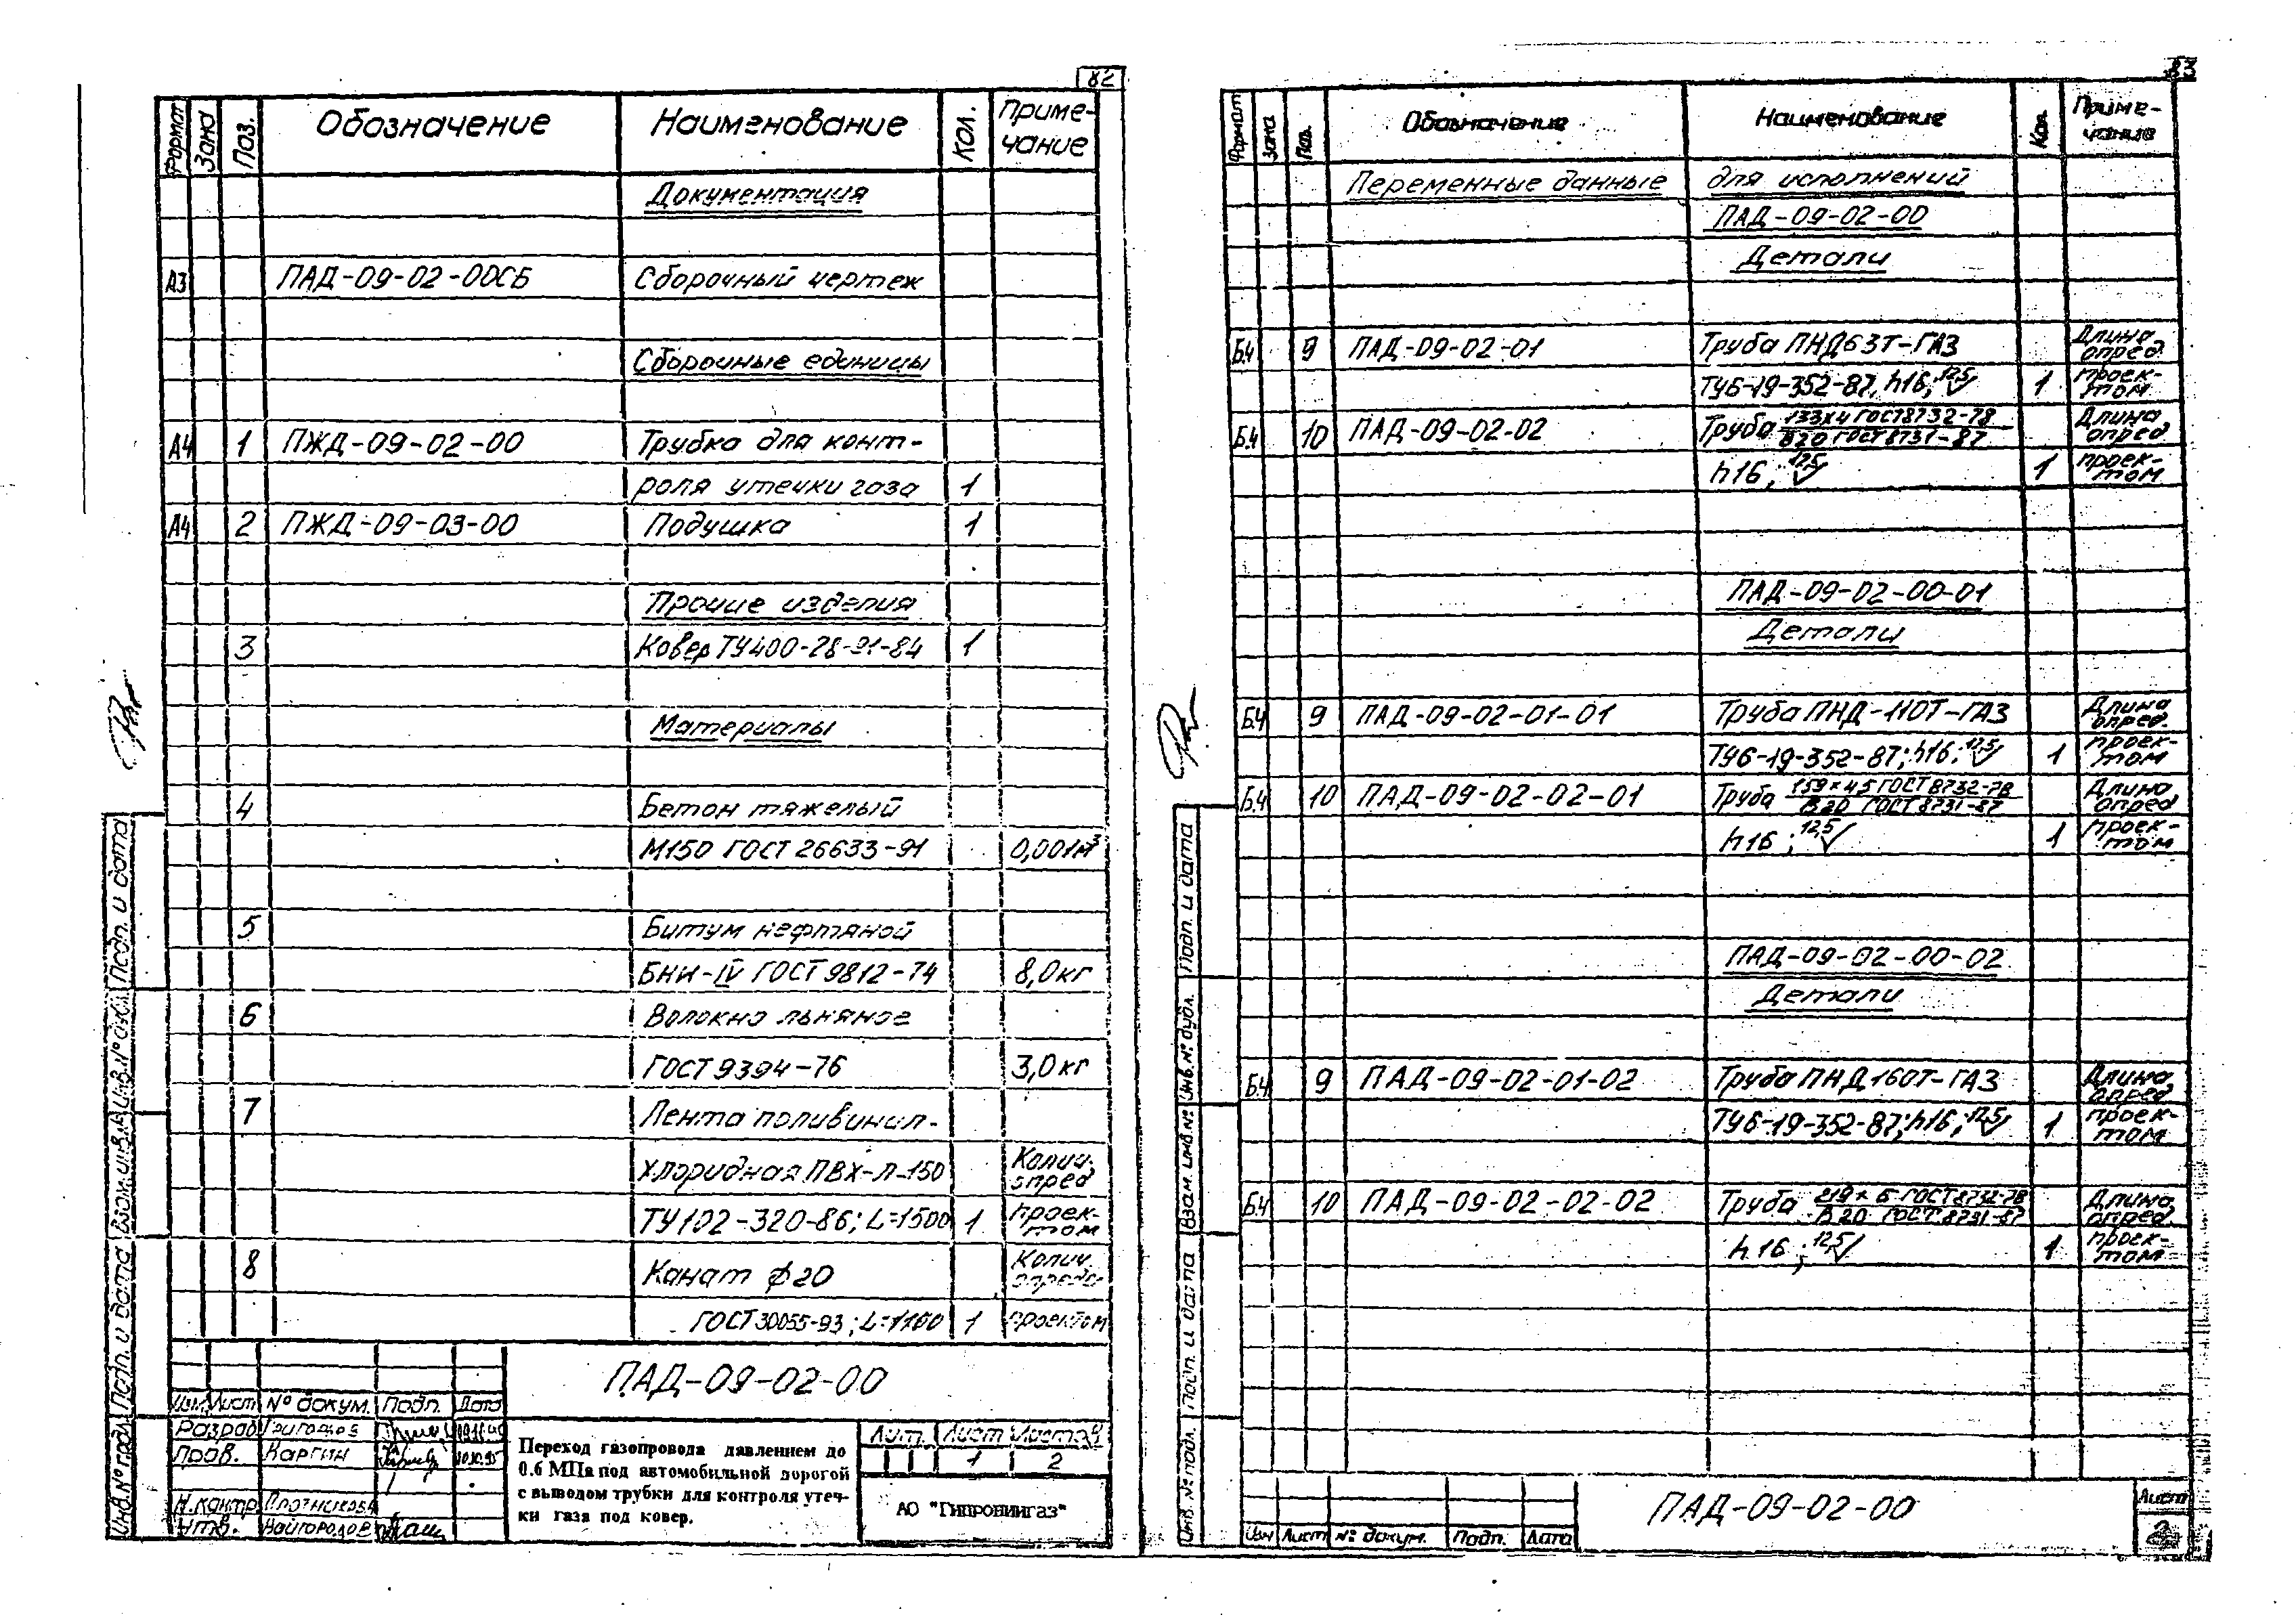 82
Формат Зона Поз. Обозначение Наименование Кол. Приме-
чание
Документация
А3 ПАД-09-02-00СБ Сборочный чертеж
Сборочные единицы
А4 1 ПЖД-09-02-00 Трубка для конт-
роля утечки газа 1
А4 2 ПЖД-09-03-00 Подушка 1
Прочие изделия
3 Ковер ТУ400-28-91-84 1
Материалы
4 Бетон тяжелый
М150 ГОСТ 26633-91 0,001м³
5 Битум нефтяной
БНИ-IV ГОСТ 9812-74 8,0кг
6 Волокно льняное
ГОСТ 9394-76 3,0кг
7 Лента поливинил-
хлоридная ПВХ-Л-150 Колич. опред
ТУ102-320-86; L=1500 1 проек-том
8 Канат ф20 Колич. опреде-
ГОСТ 30055-93; L=1100 1 проектом
ПАД-09-02-00
Изм. Лист № докум. Подп. Дата
Разраб.
Пров. Каргин 10.10.95
Н.контр. Плотникова
Утв.
Переход газопровода давлением до
0.6 МПа под автомобильной дорогой
с выводом трубки для контроля утеч-
ки газа под ковер.
Лит. Лист Листов
1 2
АО "Гипрониигаз"
Инв.№ подл. Подп. и дата Взам. инв.№ Инв.№ дубл. Подп. и дата
83
Формат Зона Поз. Обозначение Наименование Кол. Приме-
чание
Переменные данные для исполнений
ПАД-09-02-00
Детали
Б.4 9 ПАД-09-02-01 Труба ПНД63Т-ГАЗ Длина опред.
ТУ6-19-352-87; h16; 12,5 1 проек-том
Б.4 10 ПАД-09-02-02 Труба 133х4 ГОСТ8732-78 / В20 ГОСТ 8731-87 Длина опред
h16; 12,5 1 проек-том
ПАД-09-02-00-01
Детали
Б.4 9 ПАД-09-02-01-01 Труба ПНД-110Т-ГАЗ Длина опред.
ТУ6-19-352-87; h16; 12,5 1 проек-том
Б.4 10 ПАД-09-02-02-01 Труба 159х4,5 ГОСТ8732-78 / В20 ГОСТ 8731-87 Длина опред
h16; 12,5 1 проек-том
ПАД-09-02-00-02
Детали
Б.4 9 ПАД-09-02-01-02 Труба ПНД160Т-ГАЗ Длина опред
ТУ6-19-352-87; h16; 12,5 1 проек-том
Б.4 10 ПАД-09-02-02-02 Труба 219х6 ГОСТ8732-78 / В20 ГОСТ 8731-87 Длина опред.
h16; 12,5 1 проек-том
ПАД-09-02-00
Лист
2
Изм Лист № докум. Подп. Дата
Инв. № подл. Подп. и дата Взам. инв. № Инв. № дубл. Подп. и дата